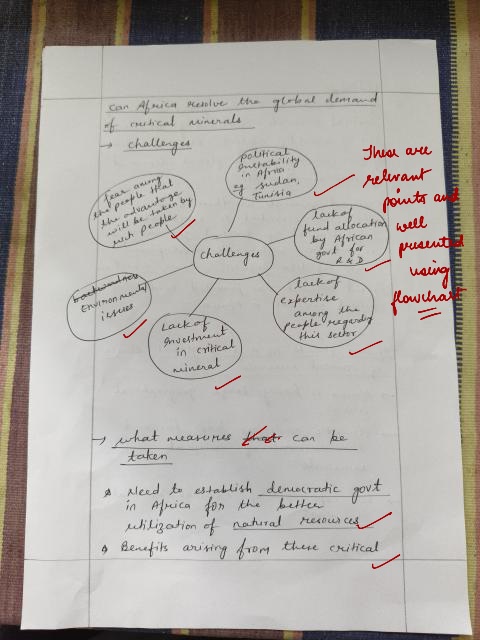 can Africa resolve the global demand
of critical minerals
→ challenges
political
instability
in Africa
eg sudan,
Tunisia
fear among
the people that
the advantage
will be taken by
rich people
lack of
fund allocation
by African
govt for
R & D
challenges
backwardness
Environmental
issues
Lack of
investment
in critical
mineral
lack of
expertise
among the
people regarding
this sector
These are
relevant
points and
well
presented
using
flowchart
→ what measures that can be
taken
Need to establish democratic govt
in Africa for the better
utilization of natural resources
Benefits arising from these critical